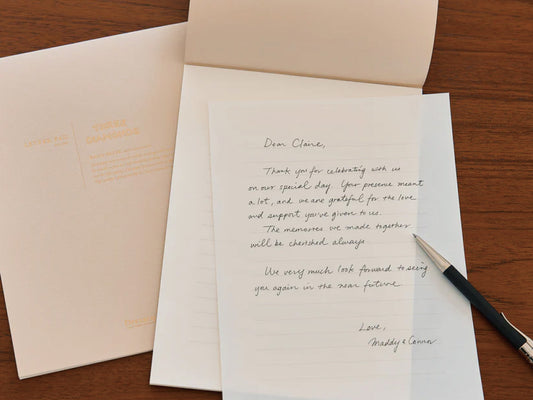 Dear Claire,
Thank you for celebrating with us
on our special day. Your presense meant
a lot, and we are grateful for the love
and support you've given to us.
The memories we made together
will be cherished always
We very much look forward to seeing
you again in the near future.
Love,
Maddy & Connor